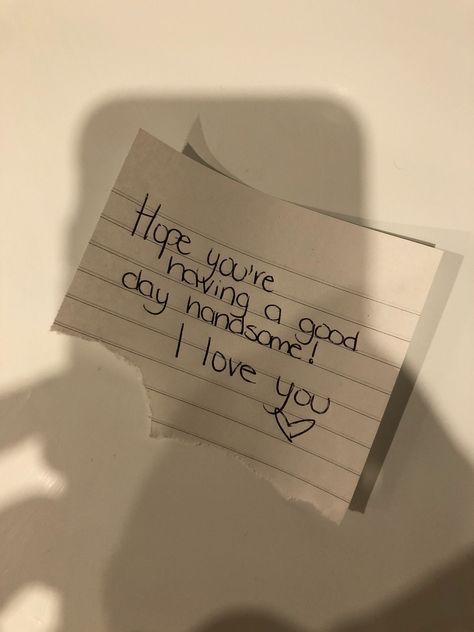 Hope you're
having a good
day handsome!
I love you
♡